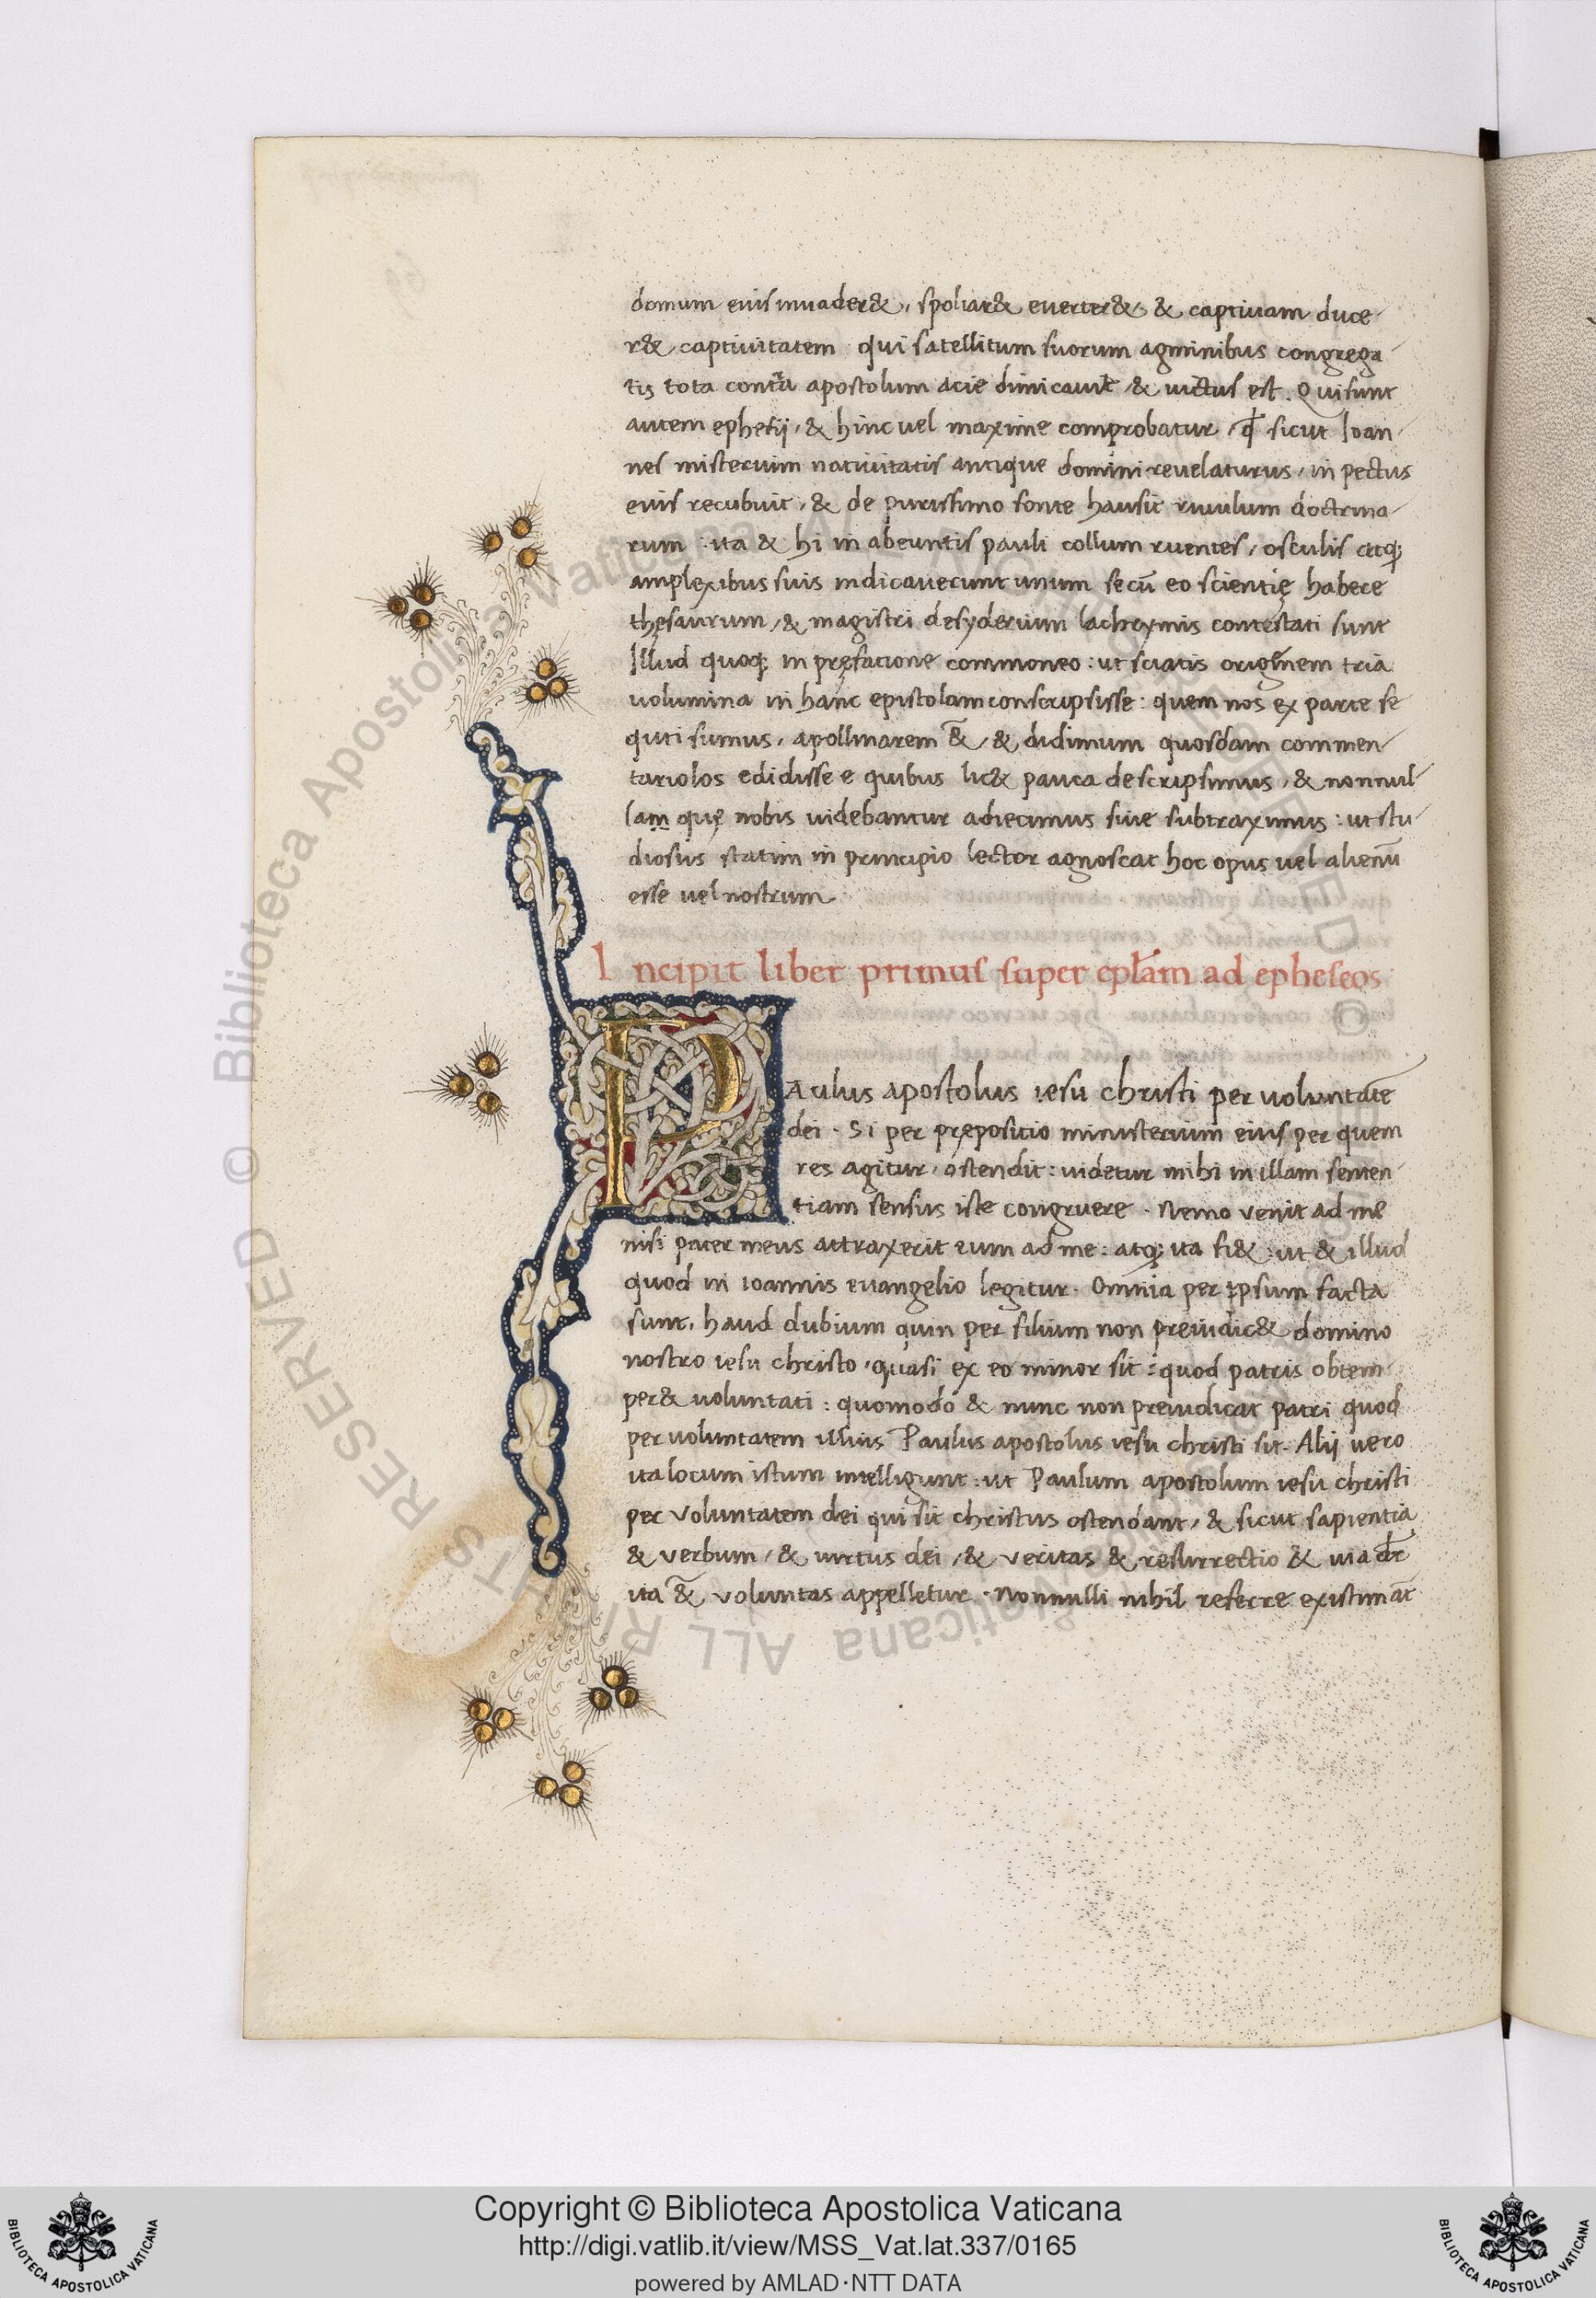 domum eius inuader&, spoliar& euerter& & captiuam duce
r& captiuitatem qui satellitum suorum agminibus congrega
tis tota contra apostolum acie dimicauit & uictus est. Qui sunt
autem ephesij, & hinc uel maxime comprobatur, qđ sicut Ioan
nes misterium natiuitatis antique domini reuelaturus, in pectus
eius recubuit, & de purissimo fonte hausit riuulum doctrina
rum : ita & hi in abeuntis pauli collum ruentes, osculis atq;
amplexibus suis indicauerunt unum secū eo scientię habere
thesaurum, & magistri desyderium lachrymis contestati sunt
Illud quoq; in pręfatione commoneo : ut sciatis originem tria
uolumina in hanc epistolam conscripsisse : quem nos ex parte se
quti sumus, apollinarem &̄, & didimum quosdam commen
tariolos edidisse e quibus lic& pauca descripsimus, & nonnul
lam quę nobis uidebantur adiecimus siue subtraximus : ut stu
diosus statim in principio lector agnoscat hoc opus uel alienū
esse uel nostrum
Incipit liber primus super epłam ad epheseos
PAulus apostolus iesu christi per uoluntatē
dei . Si per prępositio ministerium eius per quem
res agitur, ostendit : uidetur mihi in illam senten
tiam sensus iste congruere . Nemo venit ad me
nisi pater meus attraxerit eum ad me : atq; ita fi& : ut & illud
quod in ioannis euangelio legitur . Omnia per ipsum facta
sunt, haud dubium quin per filium non preiudic& domino
nostro iesu christo, quasi ex eo minor sit : quod patris obtem
per& uoluntati : quomodo & nunc non preiudicat patri quod
per uoluntatem illius Paulus apostolus iesu christi sit. Alij uero
ita locum istum intelligunt : ut Paulum apostolum iesu christi
per voluntatem dei qui sit christus ostendant, & sicut sapientia
& verbum, & uirtus dei, & veritas & resurrectio & uia dr̄
ita &̄ voluntas appelletur . Nonnulli nihil referre existimāt
Copyright © Biblioteca Apostolica Vaticana
http://digi.vatlib.it/view/MSS_Vat.lat.337/0165
powered by AMLAD·NTT DATA
BIBLIOTECA APOSTOLICA VATICANA
BIBLIOTECA APOSTOLICA VATICANA
© Biblioteca Apostolica Vaticana ALL RIGHTS RESERVED